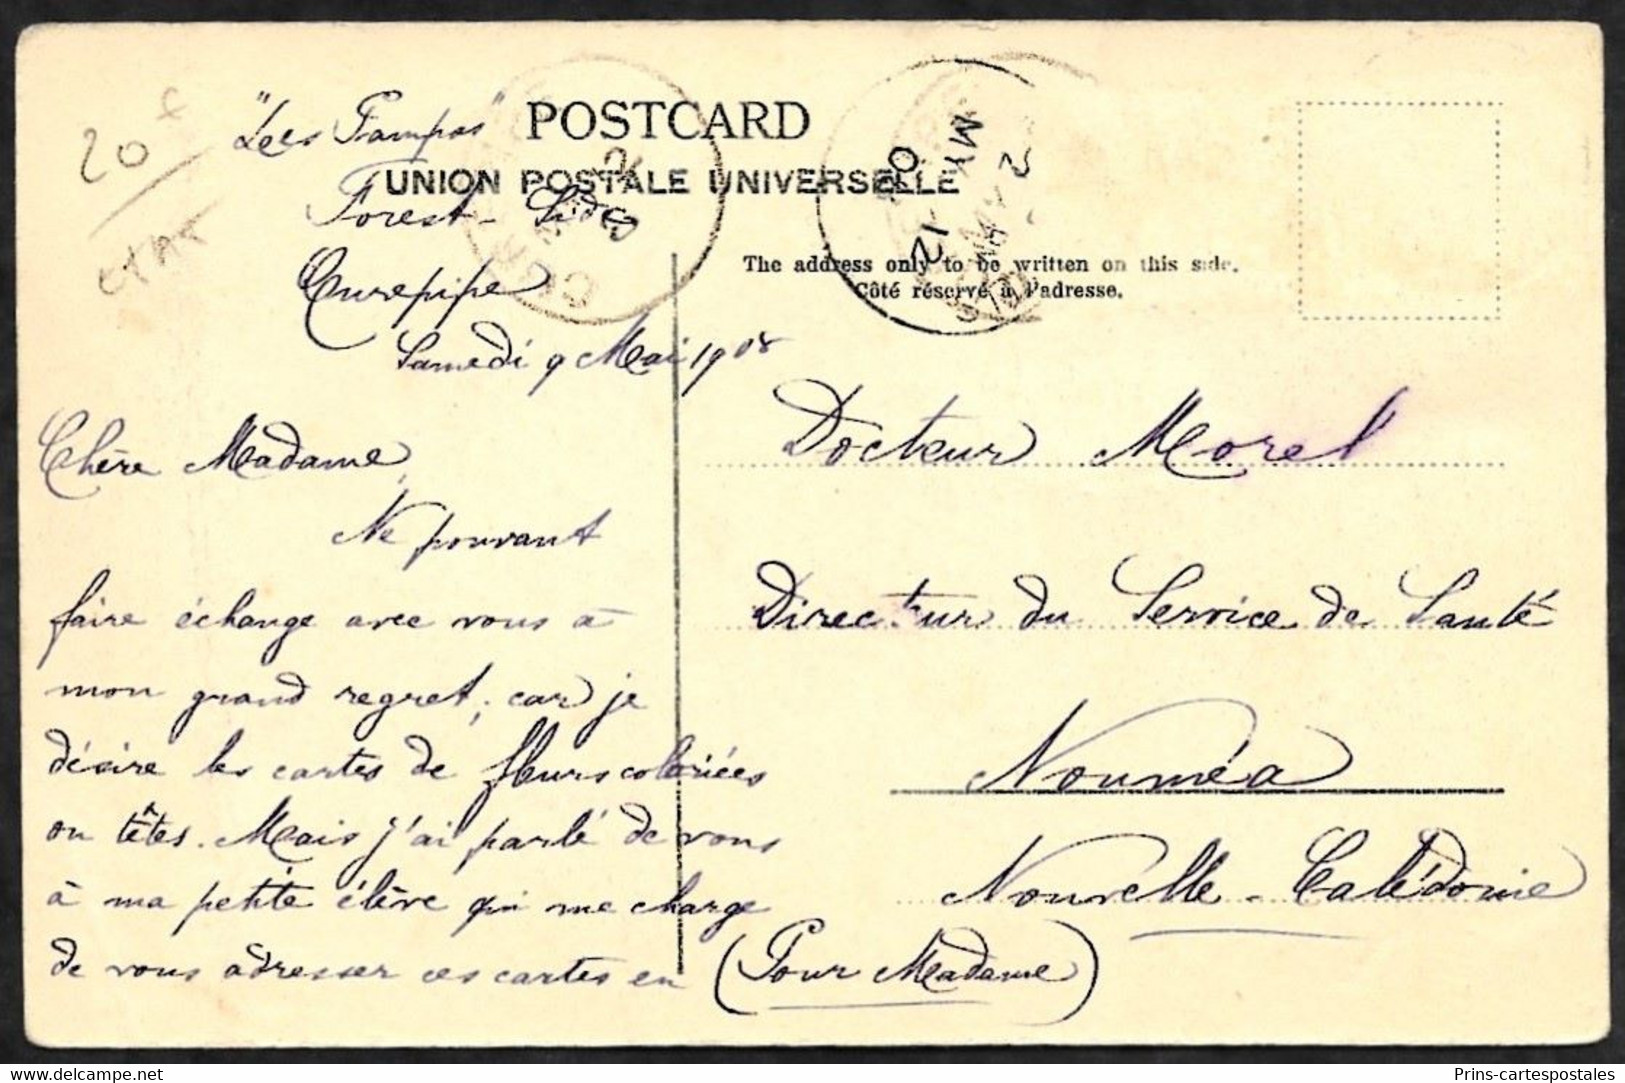 20 f
"Les Pampas"
POSTCARD
UNION POSTALE UNIVERSELLE
Forest-Side
Curepipe
Samedi 9 Mai 1908
The address only to be written on this side.
Côté réservé à l'adresse.
MY 12
0
Chère Madame,
Ne pouvant
faire échange avec vous à
mon grand regret, car je
désire les cartes de fleurs coloriées
ou têtes. Mais j'ai parlé de vous
à ma petite élève qui me charge
de vous adresser ces cartes en
Docteur Morel
Directeur du Service de Santé
Nouméa
Nouvelle-Calédonie
(Pour Madame)
delcampe.net
Prins-cartespostales